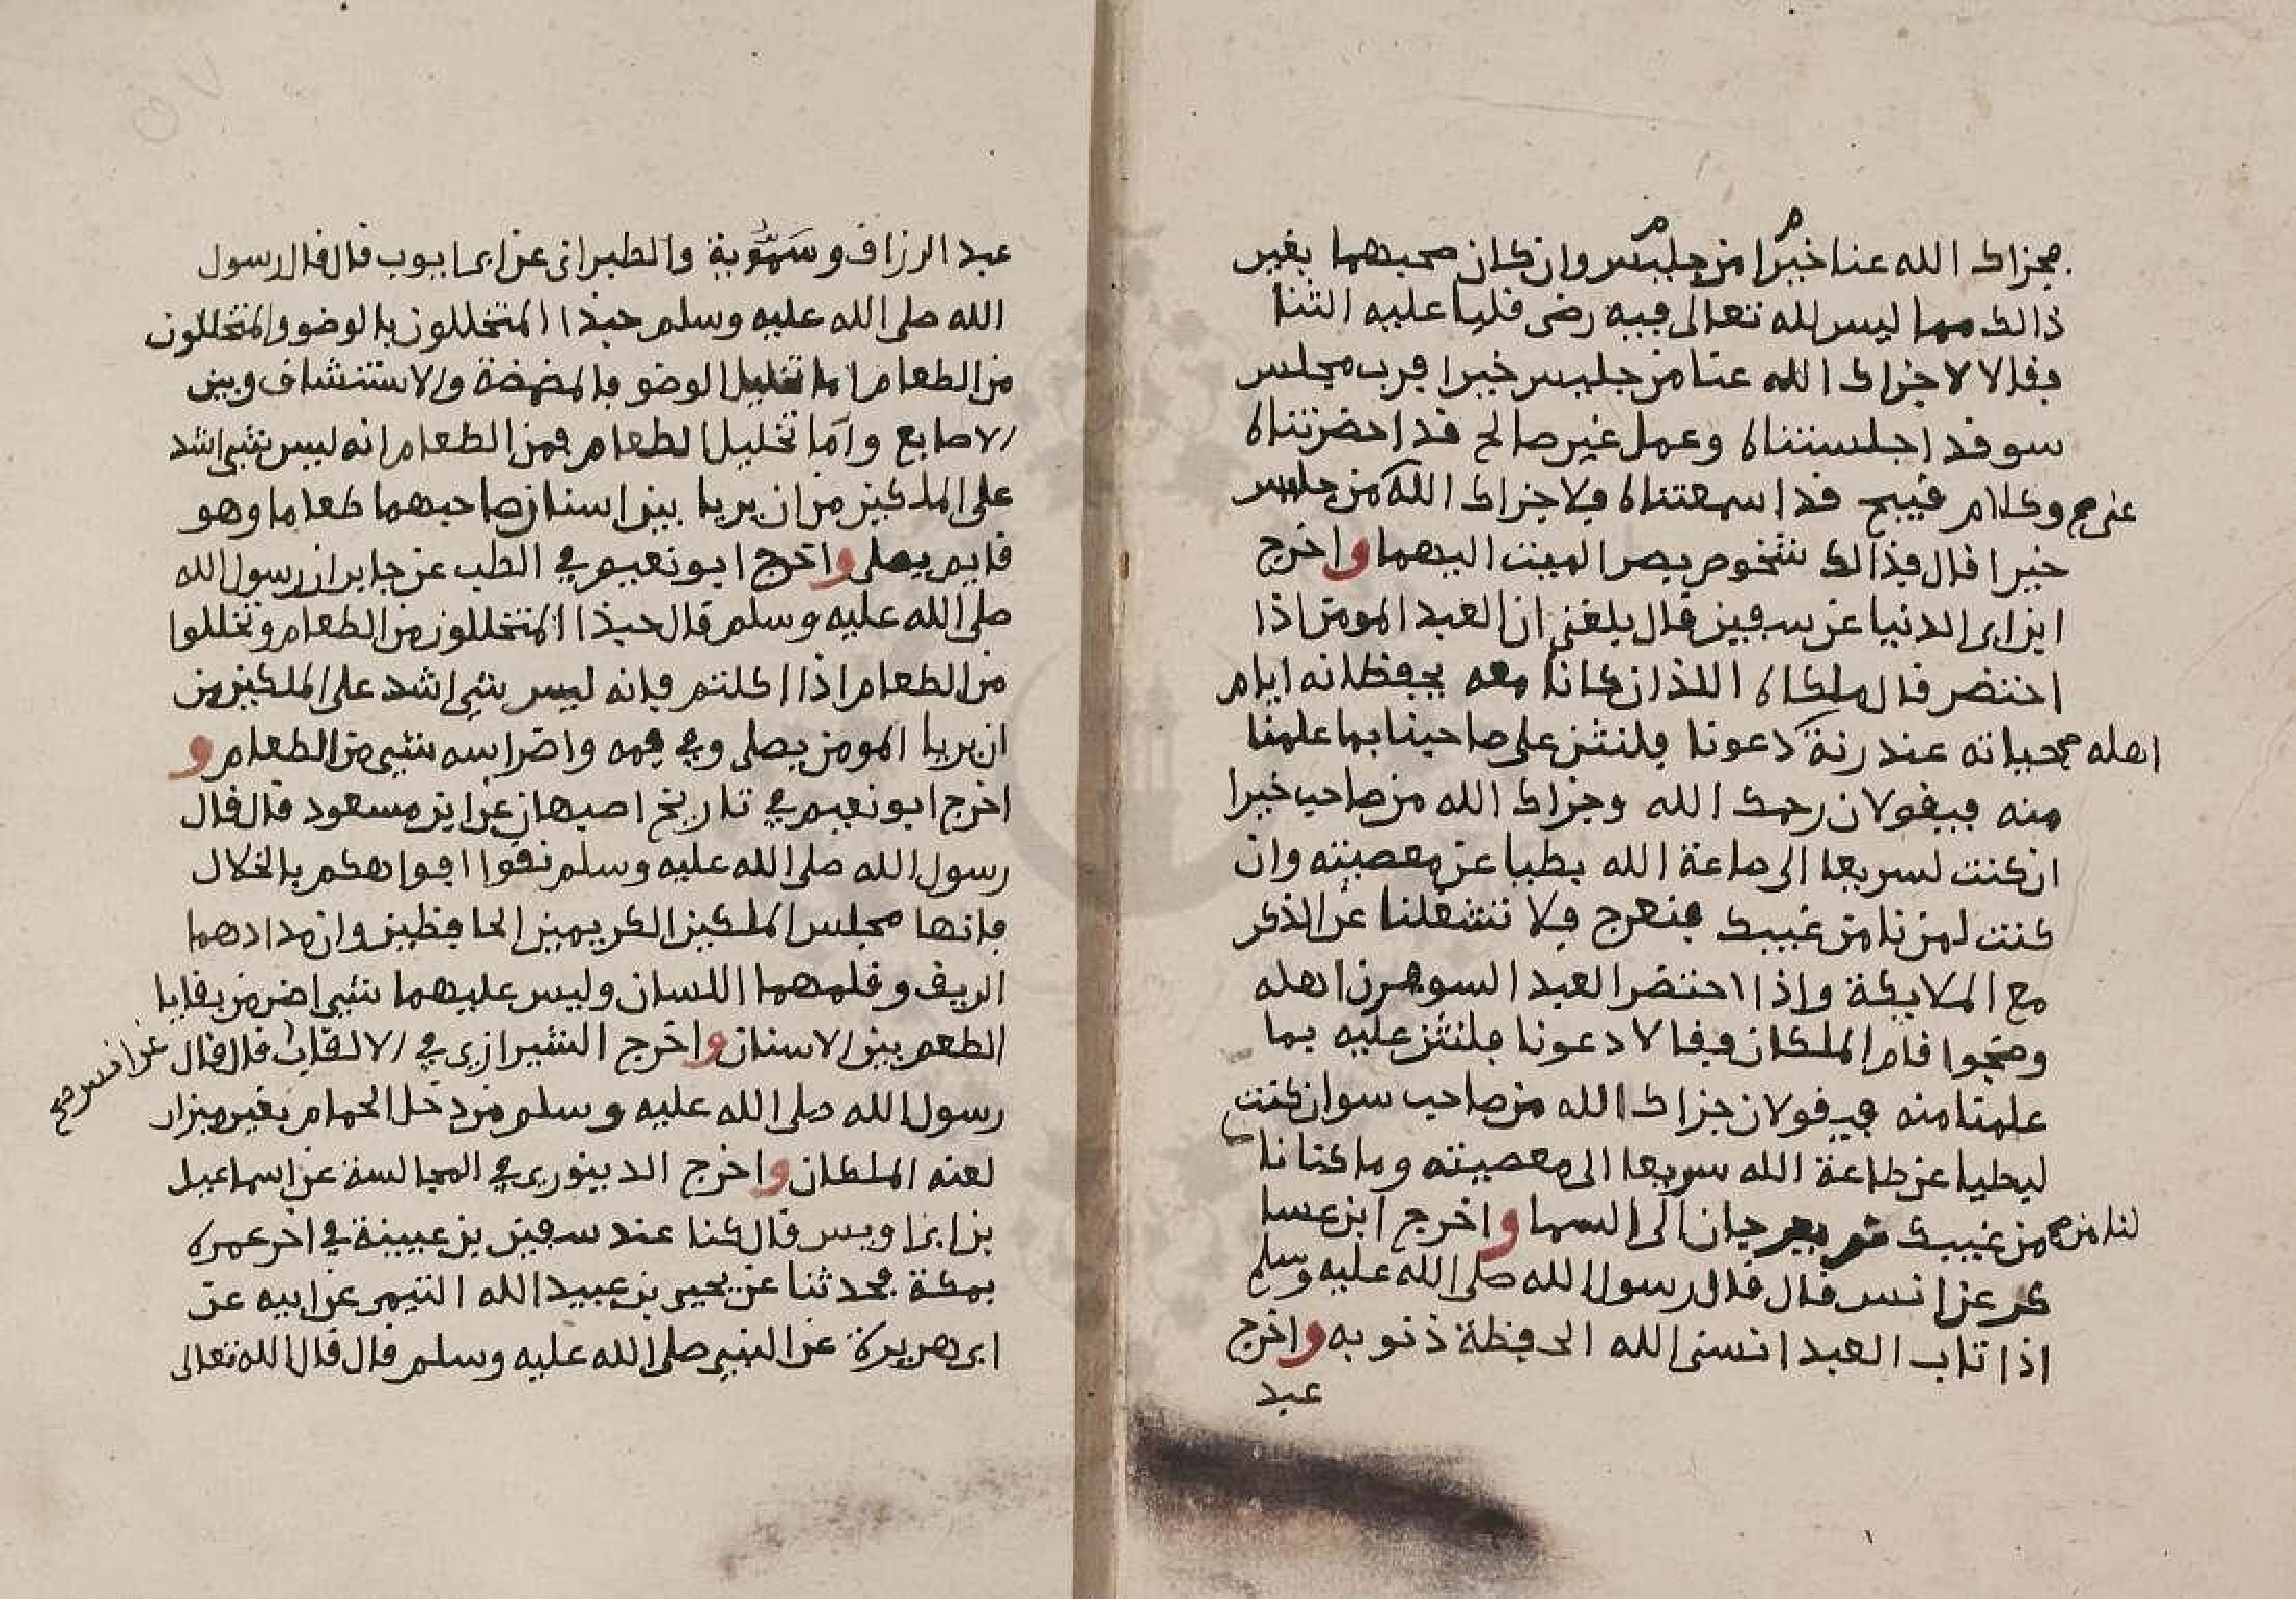 فجزاك الله عنا خيرا من جليس وان كان صحبهما بغير
ذالك مما ليس لله تعالى فيه رضى قلبا عليه الثنا
فقالا لا جزاك الله عنا من جليس خيرا فرب مجلس
سو قد اجلستناه وعمل غير صالح قد احضرتناه
وكلام قبيح قد اسمعتناه فلا جزاك الله من جليس
عنى صح
خيرا قال فذالك شخوص بصر الميت اليهما واخرج
ابن ابى الدنيا عن سفين قال بلغنى ان العبد المومن اذا
احتضر قال ملكاه اللذان كانا معه يحفظانه ايام
حياته عند رنة دعونا فلنثن على صاحبنا بما علمنا
اهله صح
منه فيقولان رحمك الله وجزاك الله من صاحب خيرا
ان كنت لسريعا الى طاعة الله بطيا عن معصيته وان
كنت لمن نامن غيبك فنعرج فلا تشغلنا عن الذكر
مع الملايكة واذا احتضر العبد السو فرن اهله
وضجوا قام الملكان فقالا دعونا فلنثن عليه بما
علمنا منه فيقولان جزاك الله من صاحب سو ان كنت
لبطيا عن طاعة الله سريعا الى معصيته وما كنا نا
من غيبك ثم يعرجان الى السما واخرج ابن عسا
لنا من صح
كر عن انس قال قال رسول الله صلى الله عليه وسلم
اذا تاب العبد انسى الله الحفظة ذنوبه واخرج
عبد
عبد الرزاق وسمويه والطبرانى عن ابى ايوب قال قال رسول
الله صلى الله عليه وسلم حبذا المتخللون بالوضو والمتخللون
من الطعام اما تخليل الوضو فالمضمضة والاستنشاق وبين
الاصابع واما تخليل الطعام فمن الطعام انه ليس شى اشد
على الملكين من ان يريا بين اسنان صاحبهما طعاما وهو
قايم يصلى واخرج ابو نعيم في الطب عن جابر ان رسول الله
صلى الله عليه وسلم قال حبذا المتخللون من الطعام وتخللوا
من الطعام اذا اكلتم فانه ليس شى اشد على الملكين من
ان يريا المومن يصلى وفي فمه واضراسه شى من الطعام و
اخرج ابو نعيم في تاريخ اصبهان عن ابن مسعود قال قال
رسول الله صلى الله عليه وسلم نقوا افواهكم بالخلال
فانها مجلس الملكين الكريمين الحافظين وان مدادهما
الريق وقلمهما اللسان وليس عليهما شى اضر من بقايا
الطعم بين الاسنان واخرج الشيرازى في الالقاب قال قال
عن انس صح
رسول الله صلى الله عليه وسلم من دخل الحمام بغير ميزار
لعنه الملكان واخرج الدينورى في المجالسة عن اسماعيل
بن ابى اويس قال كنا عند سفين بن عيينة في اخر عمره
بمكة فحدثنا عن يحيى بن عبيد الله التيمى عن ابيه عن
ابى هريرة عن النبى صلى الله عليه وسلم قال قال الله تعالى